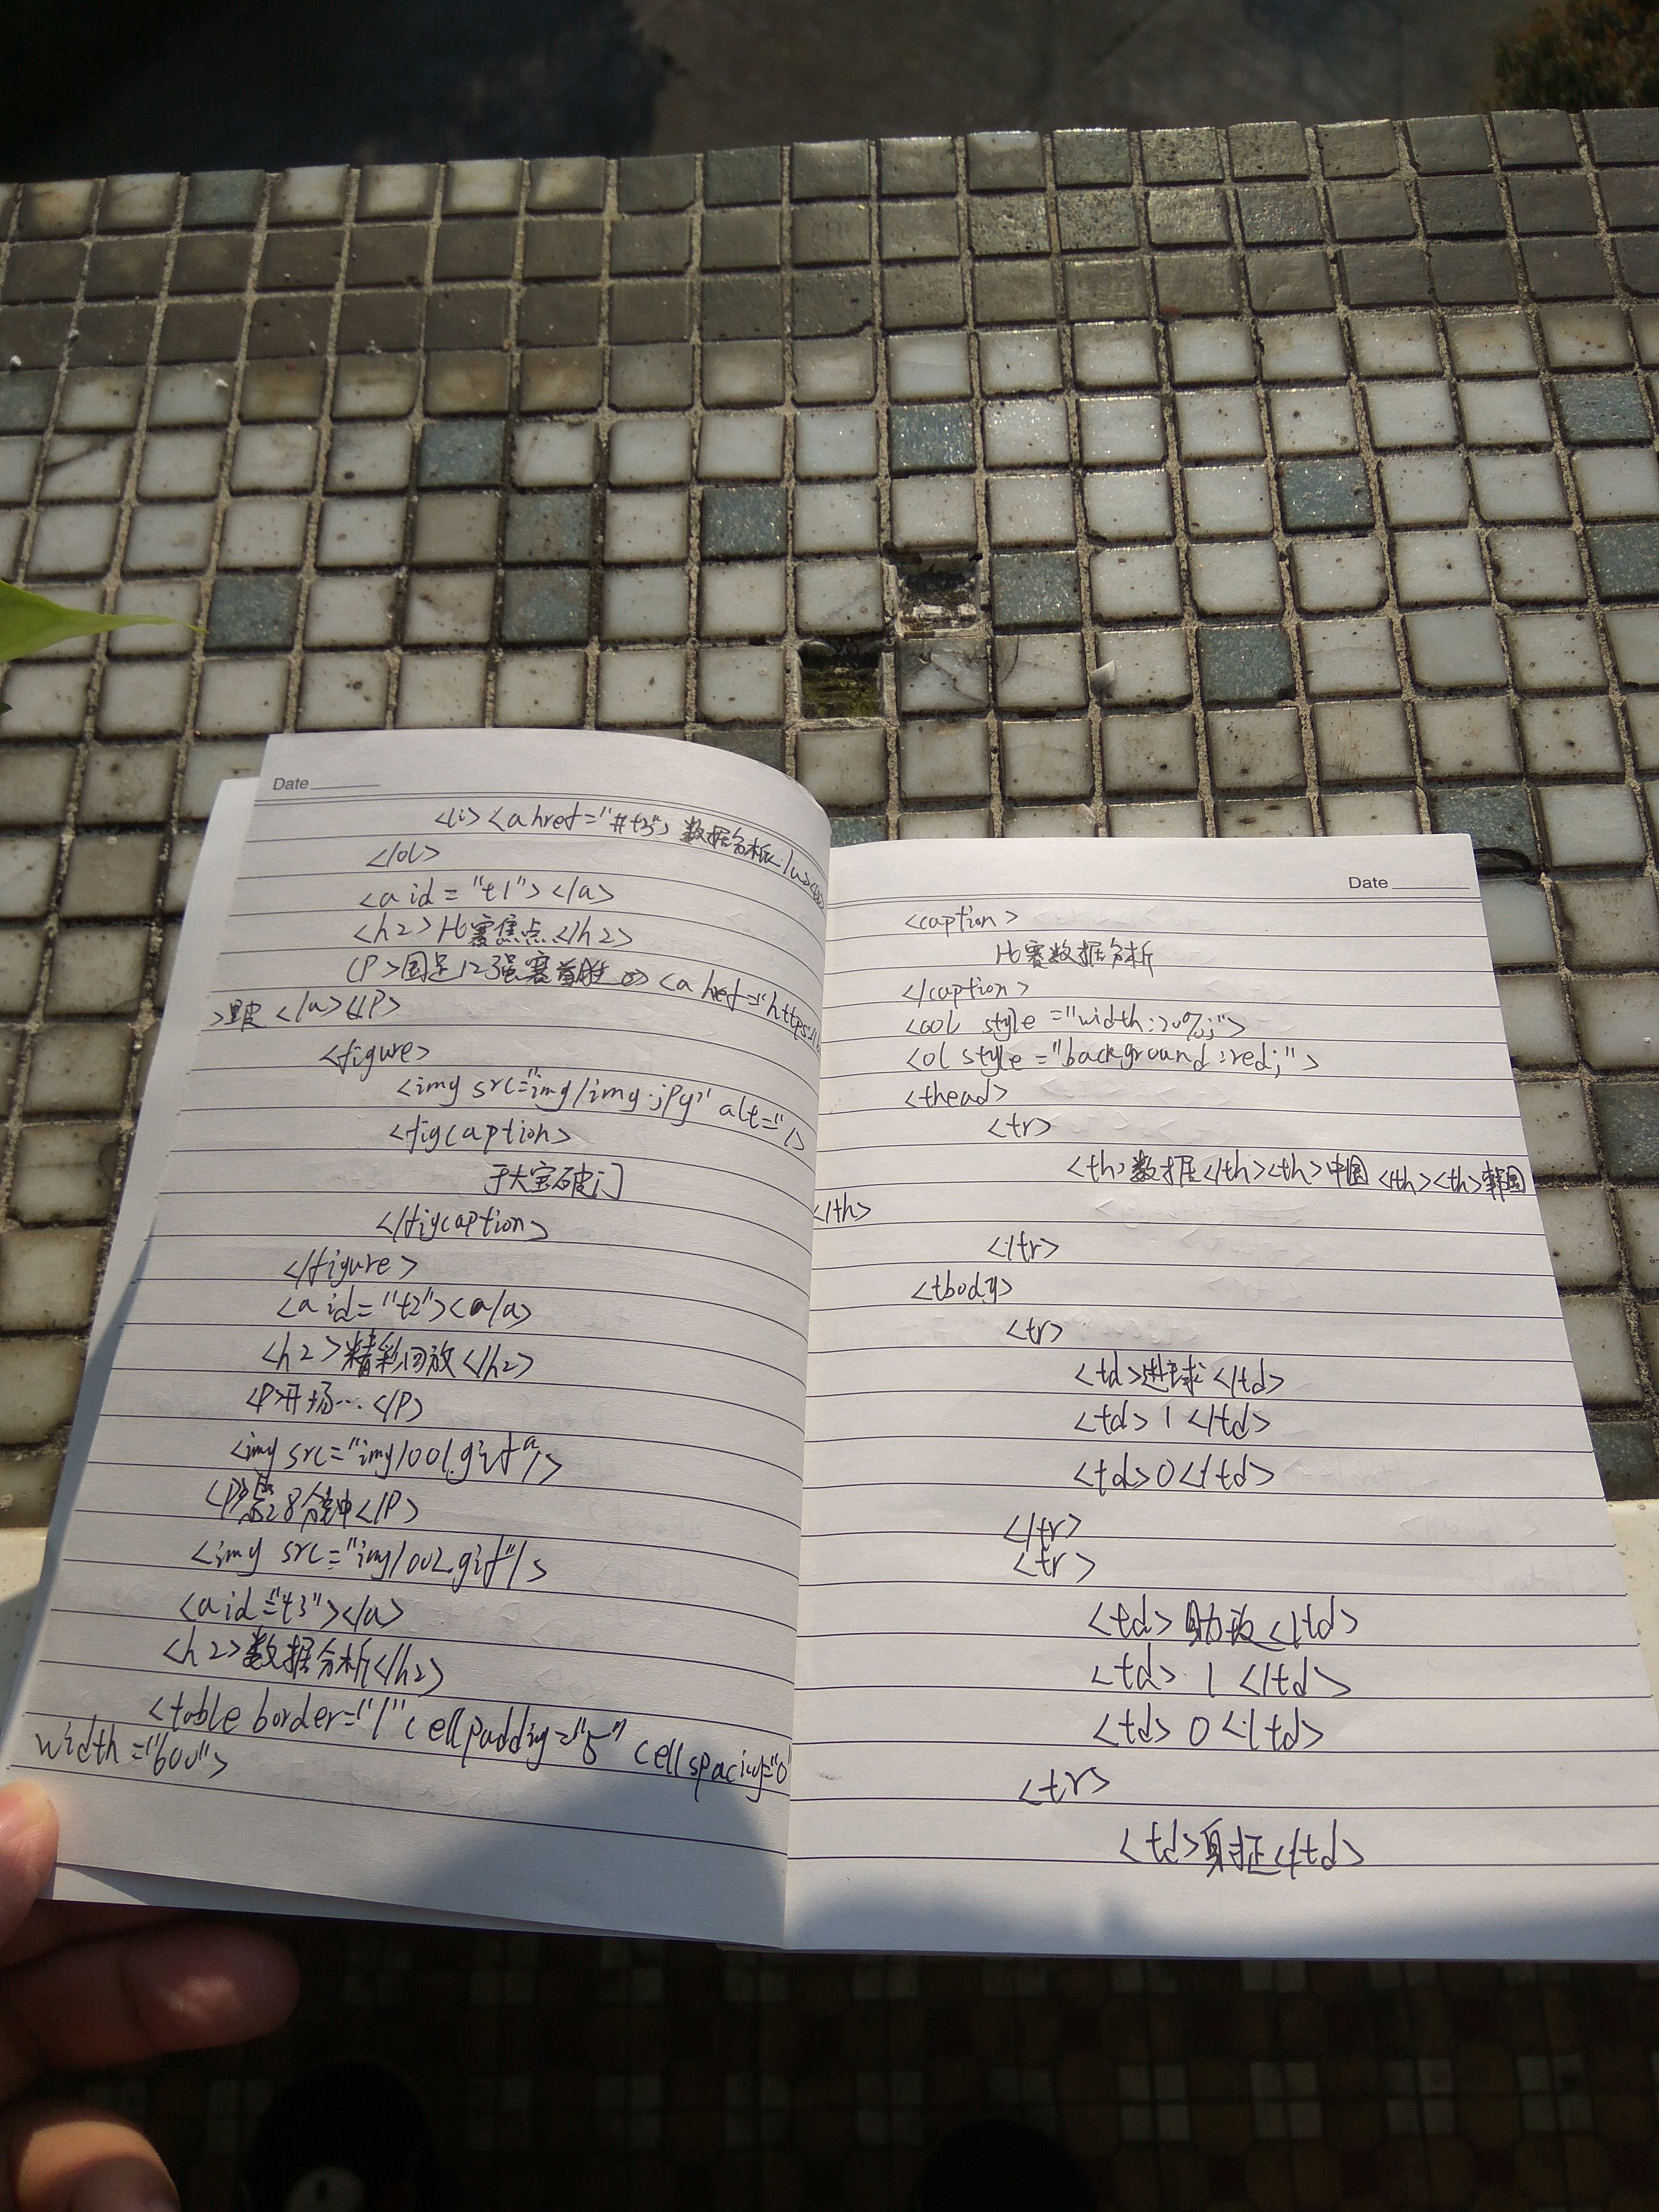 Date
<li><a href="#t3">数据分析</a></li>
</ol>
<a id="t1"></a>
<h2>比赛焦点</h2>
<P>国足12强赛首胜 <a href="https://
></a></P>
<figure>
<img src="img/img.jpg" alt="/>
<figcaption>
于大宝破门
</figcaption>
</figure>
<a id="t2"><a/a>
<h2>精彩回放</h2>
<P>开场…</P>
<img src="img/001.gif"/>
<P>第28分钟</P>
<img src="img/002.gif"/>
<a id="t3"></a>
<h2>数据分析</h2>
<table border="1" cellpadding="5" cellspacing="0
width="600">
Date
<caption>
比赛数据分析
</caption>
<col style="width:20%;">
<ol style="background:red;">
<thead>
<tr>
<th>数据</th><th>中国</th><th>韩国
</th>
</tr>
<tbody>
<tr>
<td>进球</td>
<td>1</td>
<td>0</td>
</tr>
<tr>
<td>助攻</td>
<td>1</td>
<td>0</td>
<tr>
<td>射正</td>